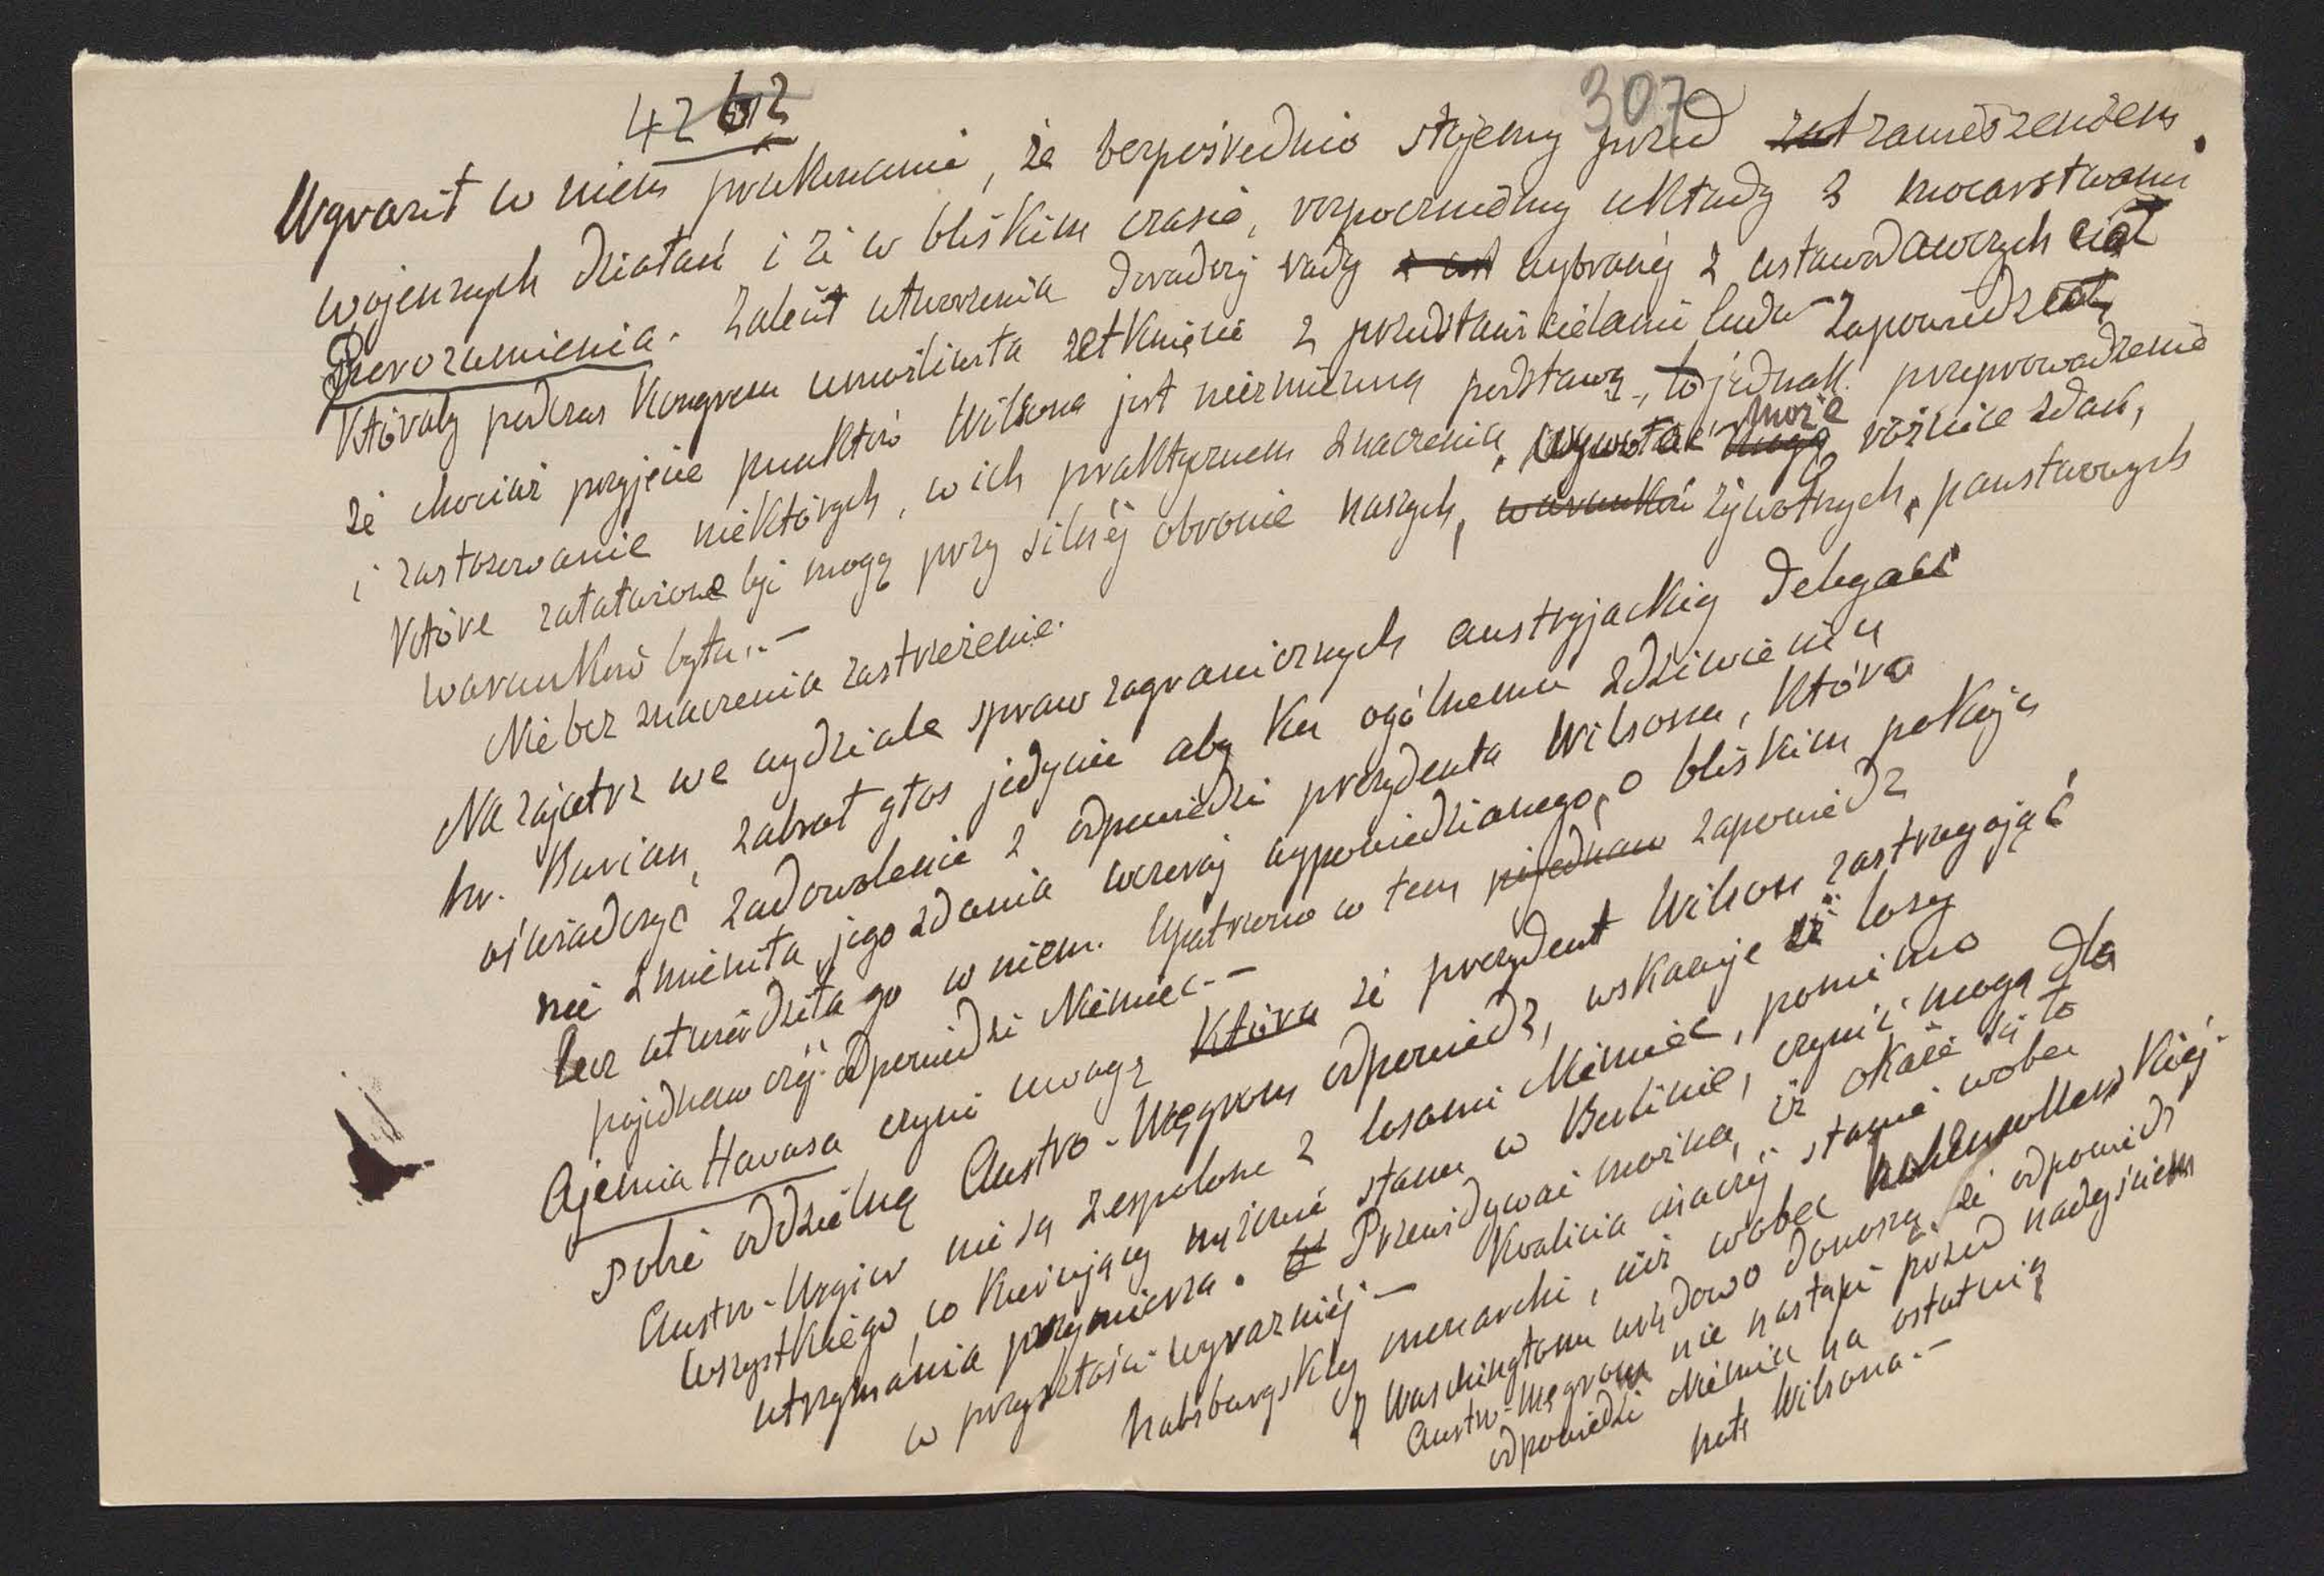 42 612
307
Wyraził w niem przekonanie, że bezpośrednio stojemy przed zat zawieszeniem
wojennych działań i że w bliskim czasie, rozpoczniemy układy z mocarstwami
Porozumienia. Zalecił utworzenia doradczej rady z ust wybranej z ustawodawczych ciał
któraby podczas Kongresu umożliwiła zetknięcie z przedstawicielami ludu
że chociaż przyjęcie punktów Wilsona jest niezmienną podstawą, to jednak przeprowadzenie
i zastosowanie niektórych, w ich praktycznem znaczenia, wywołać mogą może różnice zdań,
które załatwione być mogą przy silnej obronie naszych, warunków żywotnych, państwowych
warunków bytu.-
Nie bez znaczenia zastrzeżenie.
Nazajutrz we wydziale spraw zagranicznych austryjackiej delegacji
hr. Burian, zabrał głos jedynie aby ku ogólnemu zdziwieniu
oświadczyć zadowolenie z odpowiedzi prezydenta Wilsona, która
nie zmieniła jego zdania wczoraj wypowiedzianego, o bliskim pokoju
lecz utwierdziła go w niem. Upatrzono w tem pojednaw zapowiedź
pojednawczej odpowiedzi Niemiec.-
Ajencia Havasa czyni uwagę która że prezydent Wilson zastrzegając
sobie oddzielną Austro-Węgrom odpowiedź, wskazuje że losy
Austro-Węgier nie są zespolone z losami Niemiec, pomimo
wszystkiego, co kierujący mężowie stanu w Berlinie, czynić mogą dla
utrzymania przymierza. Przewidywać można, iż okaże się to
w przyszłości wyraźniej - Koalicia inaczej stanie wobec
habsburgskiej monarchi, niż wobec hohenzollernskiej.
Z Waschingtonu urzędowo donoszą, że odpowiedź
Austro-Węgrom nie nastąpi przed nadejściem
odpowiedzi Niemiec na ostatnią
notę Wilsona.-